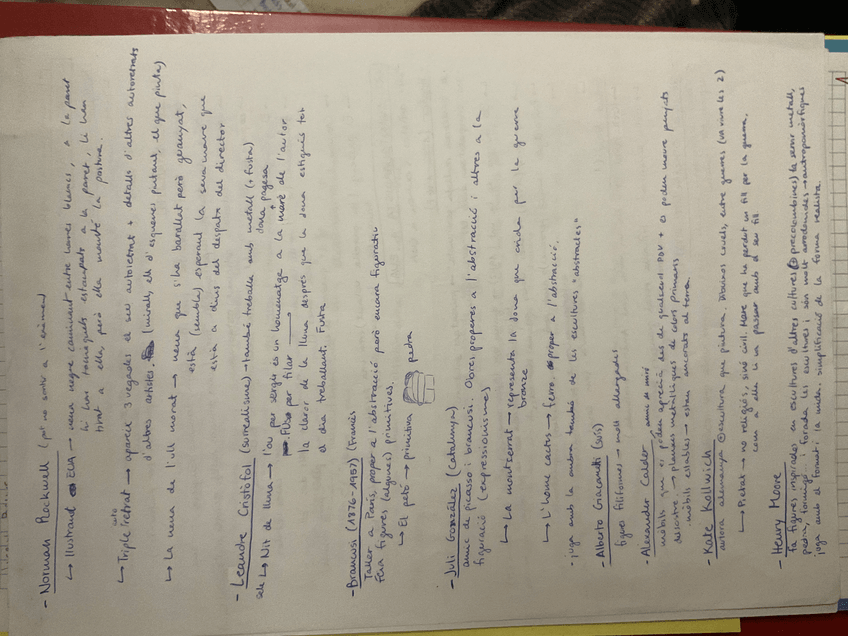 - Norman Rockwell (pot no entrar a l'examen)
↳ Il·lustrad EUA → nena negra caminant entre homes blancs, a la paret
hi han tomaquets estampats a la paret, li han
tirat a ella, però ella manté la postura.
↳ Triple autoretrat → apareix 3 vegades el seu autoretrat + detalls d'altres autoretrats
d'altres artistes. (mirall, ell d'esquenes pintant, el que pinta)
↳ La nena de l'ull morat → nena que s'ha barallat però guanyat,
està (sembla) esperant la seva mare que
està a dins del despatx del director
- Leandre Cristòfol (surrealisme) → també treballa amb metall (+ fusta)
↳ Nit de lluna → l'ou per sergir és un homenatge a la mare de l'autor
+ dona pagesa
per filar
la claror de la lluna després que la dona estigués tot
el dia treballant. Fusta
- Brancusi (1876-1957) (Francès
Taller a París, proper a l'abstracció però encara figuratiu
feia figures (algunes) primitives,
↳ El petó → primitiva pedra
- Juli González (Catalunya)
amic de picasso i brancusi. Obres properes a l'abstracció i altres a la
figuració (expressionisme)
↳ La montserrat → representa la dona que crida per la guerra
bronze
↳ L'home cactus → ferro proper a l'abstracció.
- juga amb la ombra també de les escultures "abstractes"
- Alberto Giacometti (Suís)
figures filiformes → molt allargades
- Alexander Calder amic de miró
mòbils que es poden apreciar des de qualsevol PDV + es poden moure penjats
del sostre. → planxes metàl·liques de colors primaris
mòbils estables → estan ancorats al terra.
- Kate Kollwich
autora alemanya escultura que pintura. Dibuixos cruels, entre guerres (va viure les 2)
↳ Pietat → no religiós, sinó civil Mare que ha perdut un fill per la guerra,
com a ella li va passar amb el seu fill
- Henry Moore
fa figures inspirades en escultures d'altres cultures (precolombines) fa servir metall,
pedra, formigó i forada les escultures i són molt arrodonides → antropomòrfiques
juga amb el format i la mida. simplificació de la forma realista.